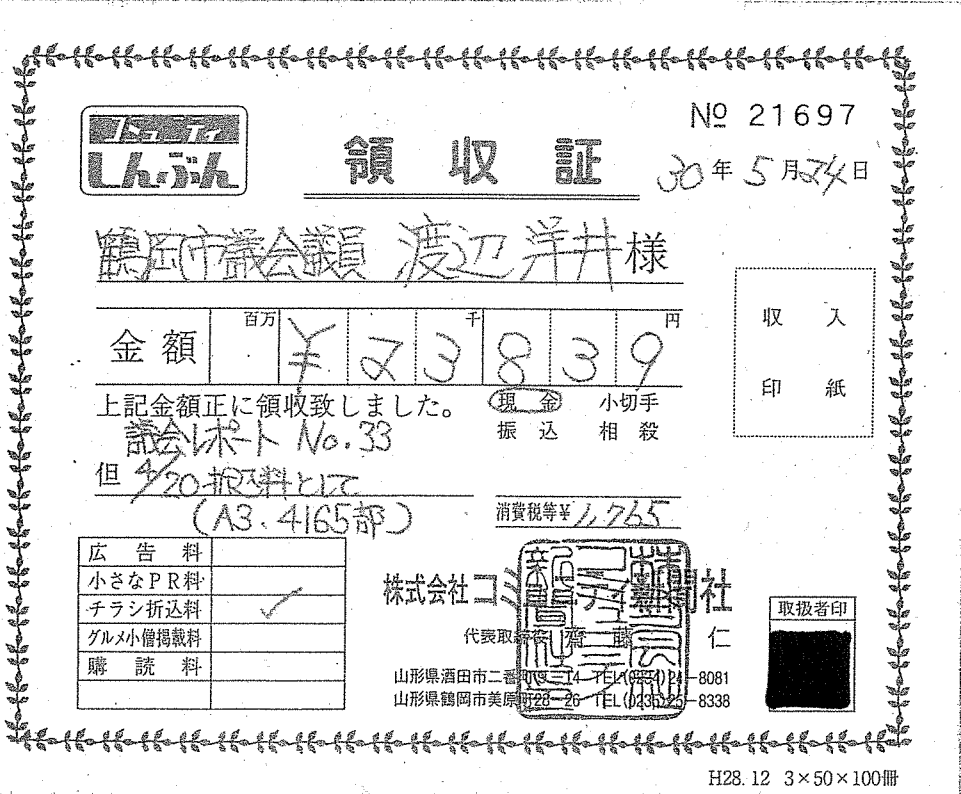 コミュニティ
しんぶん
領収証
№ 21697
30年5月24日
鶴岡市議会議員 渡辺洋井様
金額 百万 千 円
¥23839
上記金額正に領収致しました。
現金 小切手
振込 相殺
収入
印紙
議会レポート No.33
但 4/20折込料として
(A3.4165部)
消費税等¥1,765
広告料
小さなPR料
チラシ折込料 ✓
グルメ小僧掲載料
購読料
株式会社コミュニティ新聞社
代表取締役 齋藤 仁
山形県酒田市二番町9-14 TEL(0234)24-8081
山形県鶴岡市美原町28-26 TEL(0235)25-8338
取扱者印
H28.12 3×50×100冊